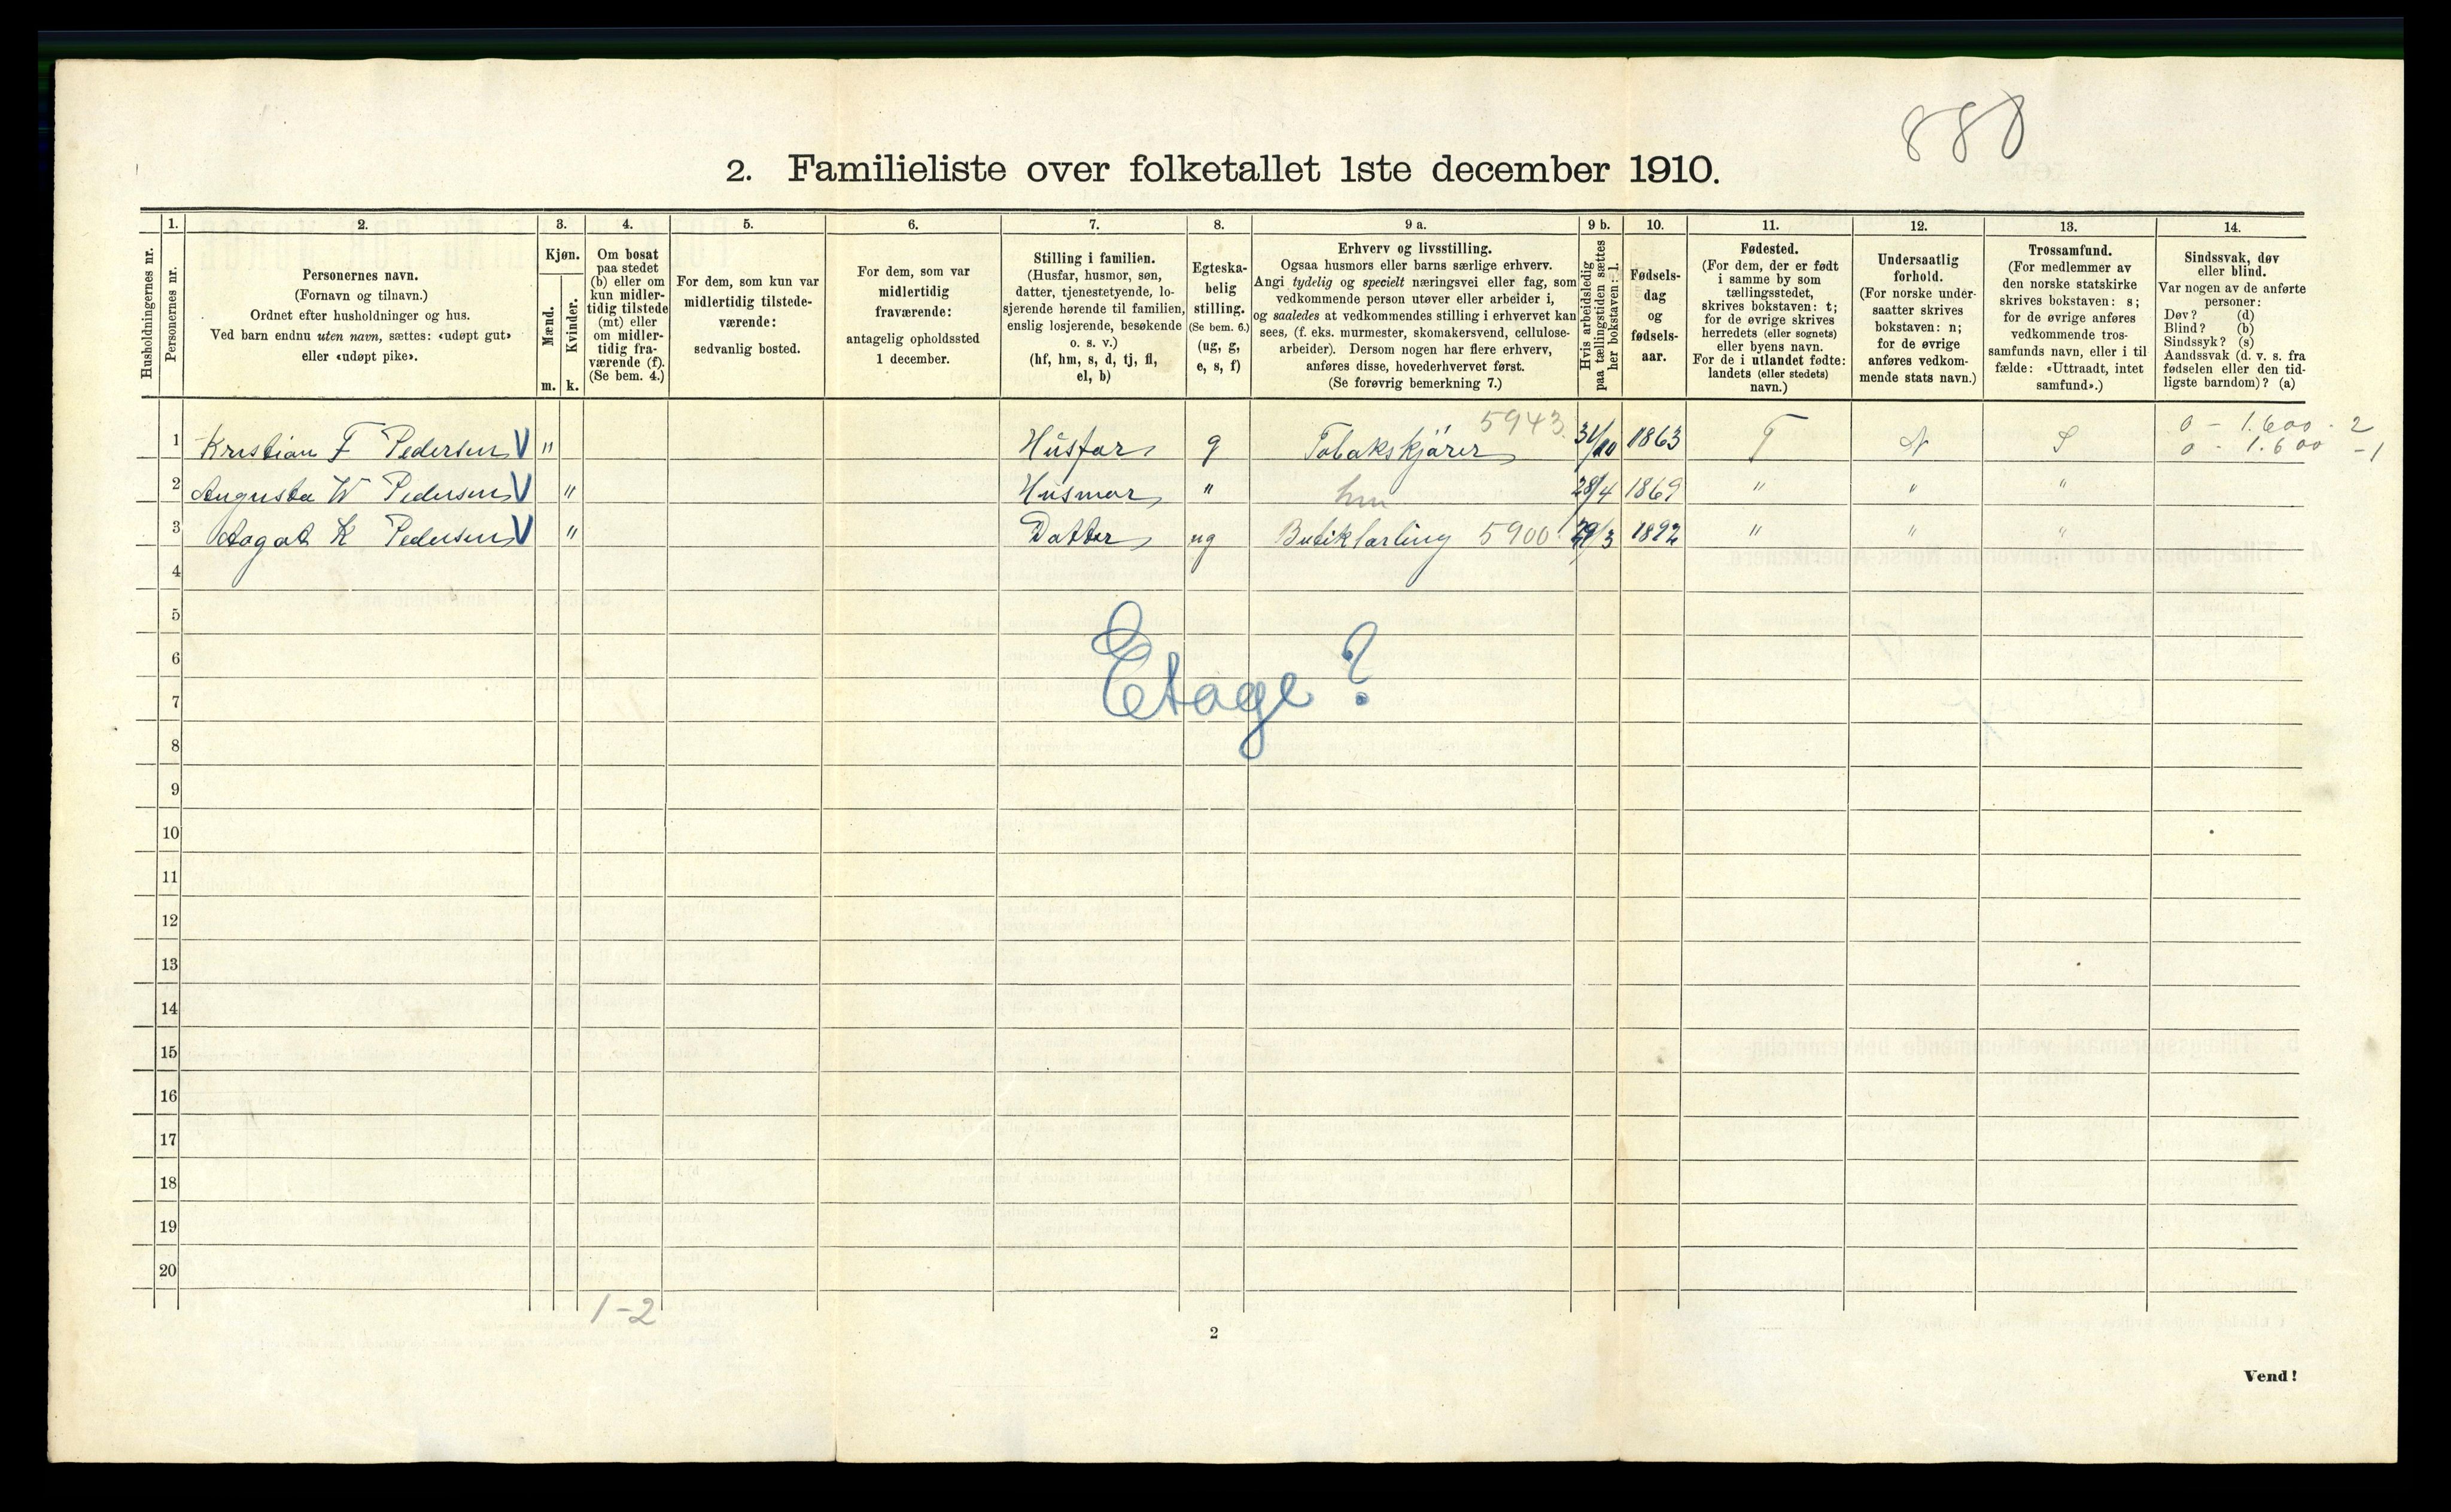 888
2. Familieliste over folketallet 1ste december 1910.
Husholdningernes nr.
1.
Personernes nr.
2.
Personernes navn.
(Fornavn og tilnavn.)
Ordnet efter husholdninger og hus.
Ved barn endnu uten navn, sættes: «udøpt gut»
eller «udøpt pike».
3.
Kjøn.
Mænd.
m.
Kvinder.
k.
4.
Om bosat
paa stedet
(b) eller om
kun midler-
tidig tilstede
(mt) eller
om midler-
tidig fra-
værende (f).
(Se bem. 4.)
5.
For dem, som kun var
midlertidig tilstede-
værende:
sedvanlig bosted.
6.
For dem, som var
midlertidig
fraværende:
antagelig opholdssted
1 december.
7.
Stilling i familien.
(Husfar, husmor, søn,
datter, tjenestetyende, lo-
sjerende hørende til familien,
enslig losjerende, besøkende
o. s. v.)
(hf, hm, s, d, tj, fl,
el, b)
8.
Egteska-
belig
stilling.
(Se bem. 6.)
(ug, g,
e, s, f)
9 a.
Erhverv og livsstilling.
Ogsaa husmors eller barns særlige erhverv.
Angi tydelig og specielt næringsvei eller fag, som
vedkommende person utøver eller arbeider i,
og saaledes at vedkommendes stilling i erhvervet kan
sees, (f. eks. murmester, skomakersvend, cellulose-
arbeider). Dersom nogen har flere erhverv,
anføres disse, hovederhvervet først.
(Se forøvrig bemerkning 7.)
9 b.
Hvis arbeidsledig
paa tællingstiden sættes
her bokstaven: l.
10.
Fødsels-
dag
og
fødsels-
aar.
11.
Fødested.
(For dem, der er født
i samme by som
tællingsstedet,
skrives bokstaven: t;
for de øvrige skrives
herredets (eller sognets)
eller byens navn.
For de i utlandet fødte:
landets (eller stedets)
navn.)
12.
Undersaatlig
forhold.
(For norske under-
saatter skrives
bokstaven: n;
for de øvrige
anføres vedkom-
mende stats navn.)
13.
Trossamfund.
(For medlemmer av
den norske statskirke
skrives bokstaven: s;
for de øvrige anføres
vedkommende tros-
samfunds navn, eller i til
fælde: «Uttraadt, intet
samfund».)
14.
Sindssvak, døv
eller blind.
Var nogen av de anførte
personer:
Døv? (d)
Blind? (b)
Sindssyk? (s)
Aandssvak (d. v. s. fra
fødselen eller den tid-
ligste barndom)? (a)
1 Kristian F Pedersen V " Husfar g Tobakskjærer 5943 /10 1863 T N S 0 - 1.600 - 2
0 - 1.600 - 1
2 Augusta W Pedersen V " Husmor " hm 28/4 1869 " " "
3 Aagot K Pedersen V " Datter ug Butiklærling 5900 /3 1892 " " "
4
5
Etage?
6
7
8
9
10
11
12
13
14
15
16
17
18
19
20
1-2
2
Vend!